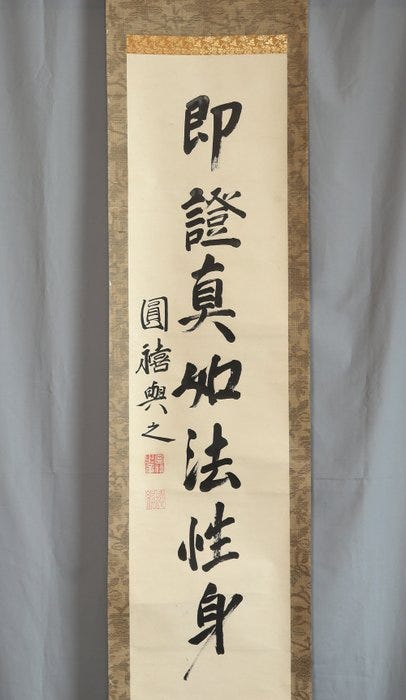 即證真如法性身
圓禧與之